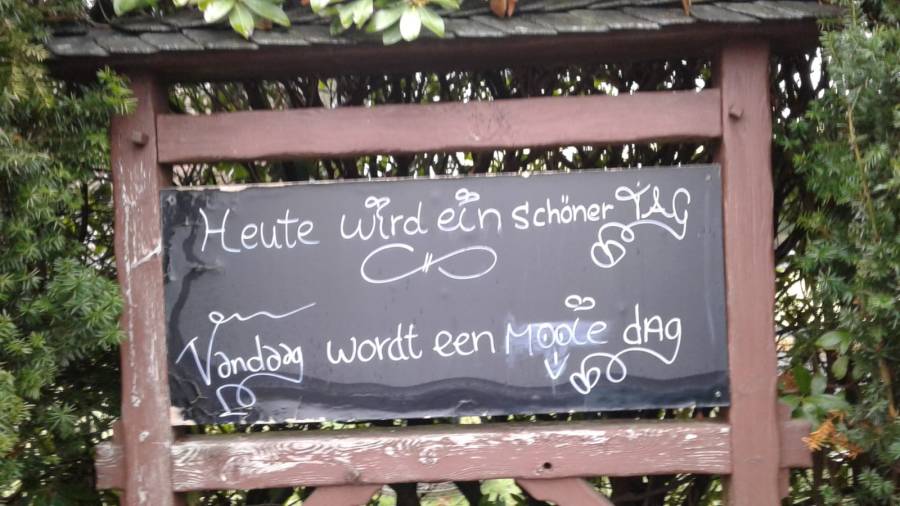 Heute wird ein schöner TAG
Vandaag wordt een Mooie dAg